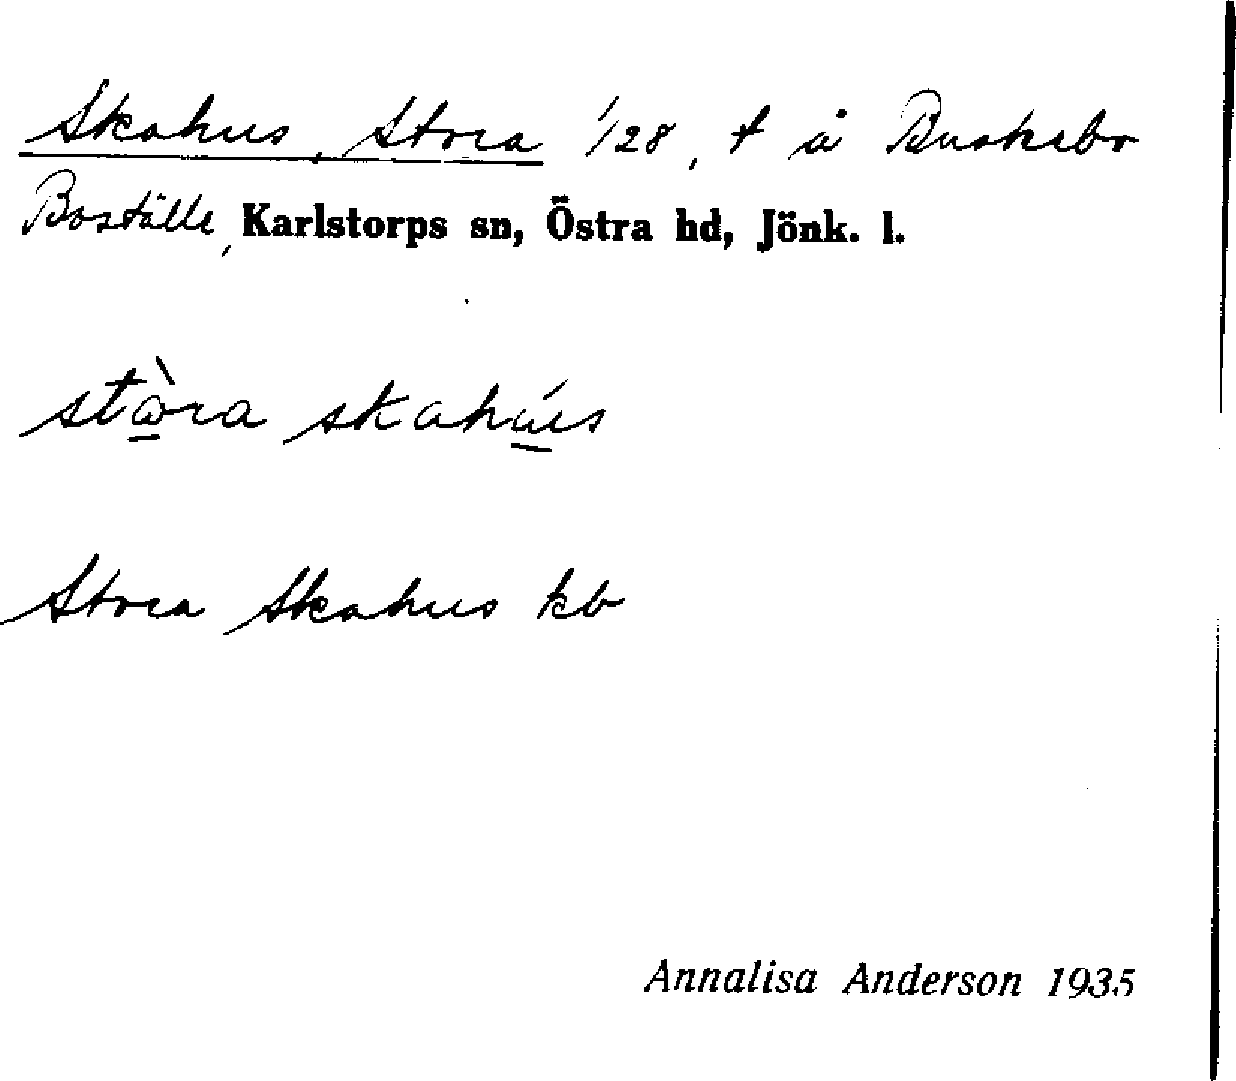 Skahus, Stora 1/28, t å Buskebo
Boställe, Karlstorps sn, Östra hd, Jönk. l.
stòra skahús
Stora Skahus kb
Annalisa Anderson 1935